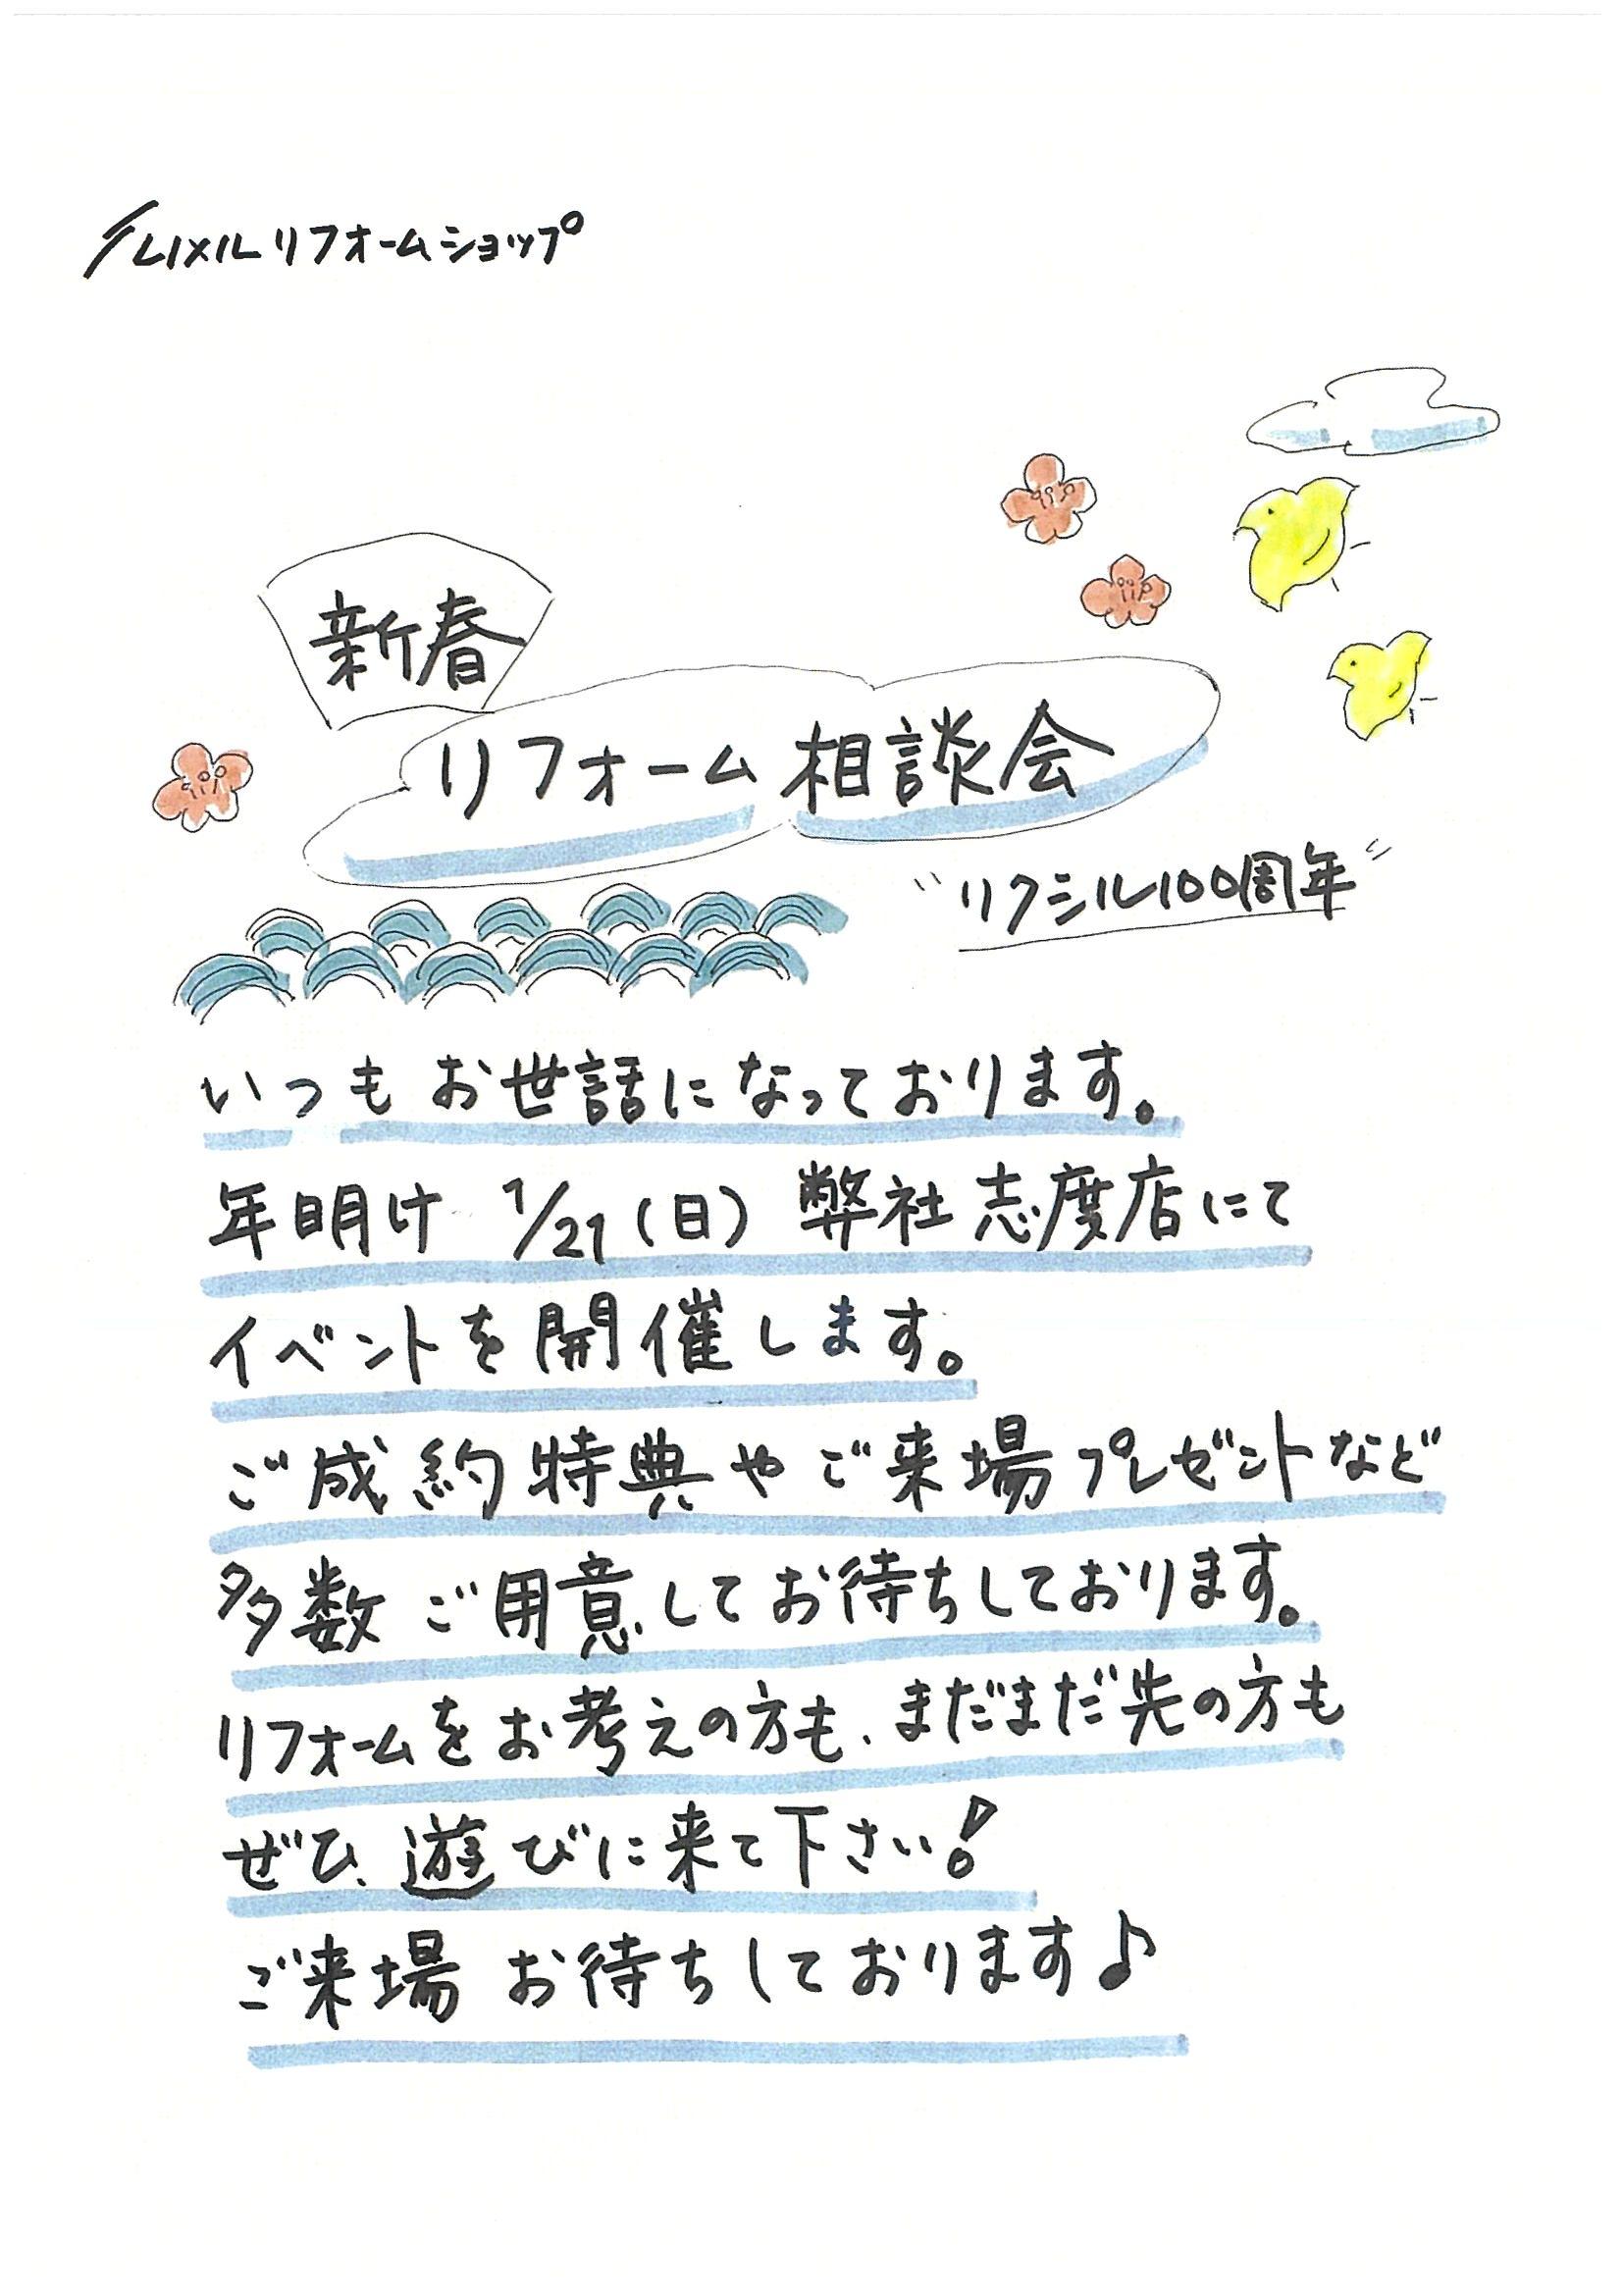 LIXILリフォームショップ
新春
リフォーム相談会
"リクシル100周年"
いつもお世話になっております。
年明け 1/21(日) 弊社志度店にて
イベントを開催します。
ご成約特典やご来場プレゼントなど
多数ご用意してお待ちしております。
リフォームをお考えの方も、まだまだ先の方も
ぜひ、遊びに来て下さい!
ご来場 お待ちしております♪